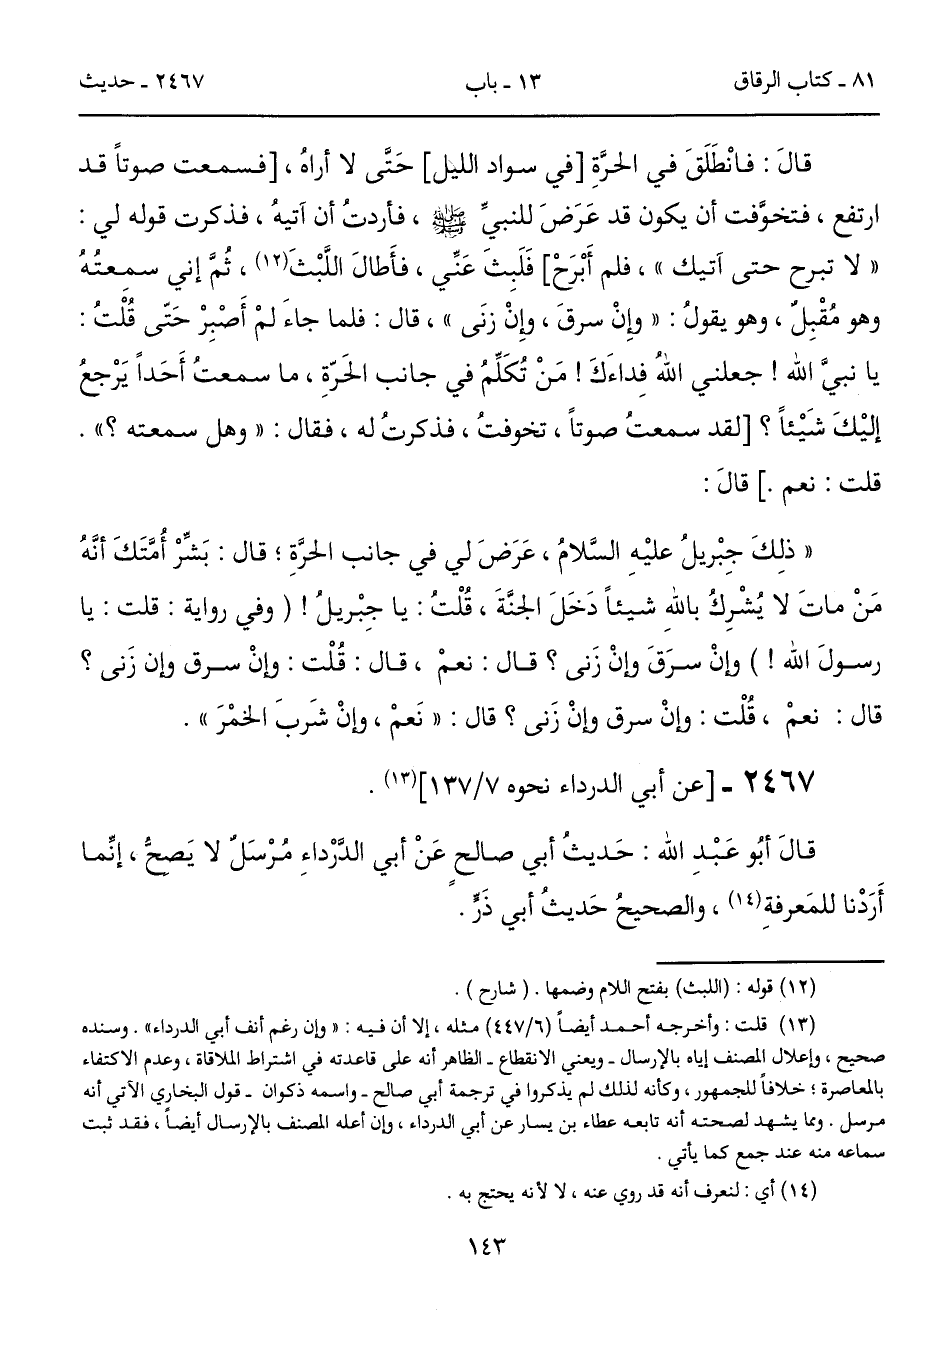 ٨١ ـ كتاب الرقاق ١٣ ـ باب ٢٤٦٧ ـ حديث
قالَ : فانْطَلَقَ في الحرَّةِ [في سواد الليل] حَتَّى لا أراهُ ، [فسمعت صوتاً قد
ارتفع ، فتخوَّفت أن يكون قد عَرَضَ للنبيِّ ﷺ ، فأردتُ أن آتيهُ ، فذكرت قوله لي :
« لا تبرح حتى آتيك » ، فلم أَبْرَحْ] فَلَبِثَ عَنِّي ، فأطالَ اللَّبْثَ(١٢) ، ثُمَّ إني سمعتُهُ
وهو مُقْبِلٌ ، وهو يقولُ : « وإنْ سرقَ ، وإنْ زنَى » ، قال : فلما جاءَ لمْ أَصْبِرْ حَتّى قُلْتُ :
يا نبيَّ الله ! جعلني اللهُ فِداءَكَ ! مَنْ تُكَلِّمُ في جانب الحَرّةِ ، ما سمعتُ أَحَداً يَرْجعُ
إليْكَ شَيْئاً ؟ [لقد سمعتُ صوتاً ، تخوفتُ ، فذكرتُ له ، فقال : « وهل سمعته ؟» .
قلت : نعم .] قالَ :
« ذلِكَ جِبْريلُ عليْهِ السَّلامُ ، عَرَضَ لي في جانب الحرَّةِ ؛ قال : بَشِّرْ أُمَّتَكَ أنَّهُ
مَنْ ماتَ لا يُشْرِكُ باللهِ شيئاً دَخَلَ الجنَّةَ ، قُلْتُ : يا جِبْريلُ ! ( وفي رواية : قلت : يا
رسولَ الله ! ) وإنْ سرَقَ وإنْ زَنى ؟ قال : نعمْ ، قال : قُلْت : وإنْ سرق وإن زَنى ؟
قال : نعمْ ، قُلْت : وإنْ سرق وإنْ زَنى ؟ قال : « نَعمْ ، وإنْ شَربَ الخمْرَ » .
٢٤٦٧ ـ [عن أبي الدرداء نحوه ١٣٧/٧](١٣) .
قالَ أبُو عَبْدِ الله : حَديثُ أبي صالحٍ عَنْ أبي الدَّرْداءِ مُرْسَلٌ لا يَصحُّ ، إنَّما
أَرَدْنا للمَعرفةِ(١٤) ، والصحيحُ حَديثُ أبي ذَرٍّ .
(١٢) قوله : (اللبث) بفتح اللام وضمها . ( شارح ) .
(١٣) قلت : وأخرجه أحمد أيضاً (٤٤٧/٦) مثله ، إلا أن فيه : « وإن رغم أنف أبي الدرداء» . وسنده
صحيح ، وإعلال المصنف إياه بالإرسال ـ ويعني الانقطاع ـ الظاهر أنه على قاعدته في اشتراط الملاقاة ، وعدم الاكتفاء
بالمعاصرة ؛ خلافاً للجمهور ، وكأنه لذلك لم يذكروا في ترجمة أبي صالح ـ واسمه ذكوان ـ قول البخاري الآتي أنه
مرسل . ومما يشهد لصحته أنه تابعه عطاء بن يسار عن أبي الدرداء ، وإن أعله المصنف بالإرسال أيضاً ، فقد ثبت
سماعه منه عند جمع كما يأتي .
(١٤) أي : لنعرف أنه قد روي عنه ، لا لأنه يحتج به .
١٤٣